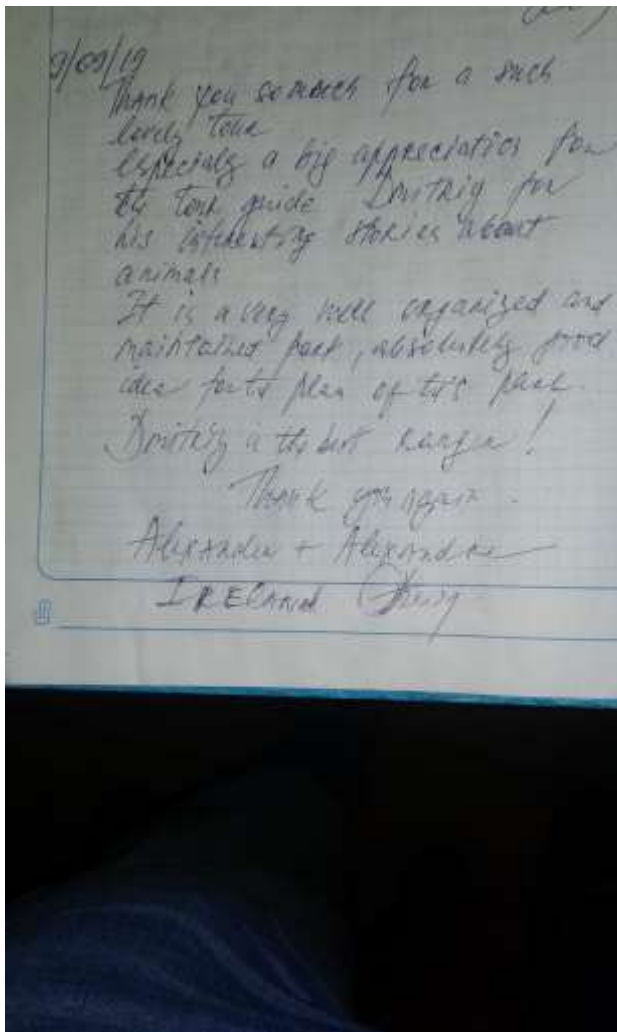 9/09/19
Thank you so much for a such
lovely tour
especialy a big appreciation for
tour guide Dmitriy for
his interesting stories about
animals
It is a very well organized and
maintained park, absolutely good
idea plan of
Dmitriy is the best Ranger!
Thank you again.
Alexander + Alexandra
IRELAND